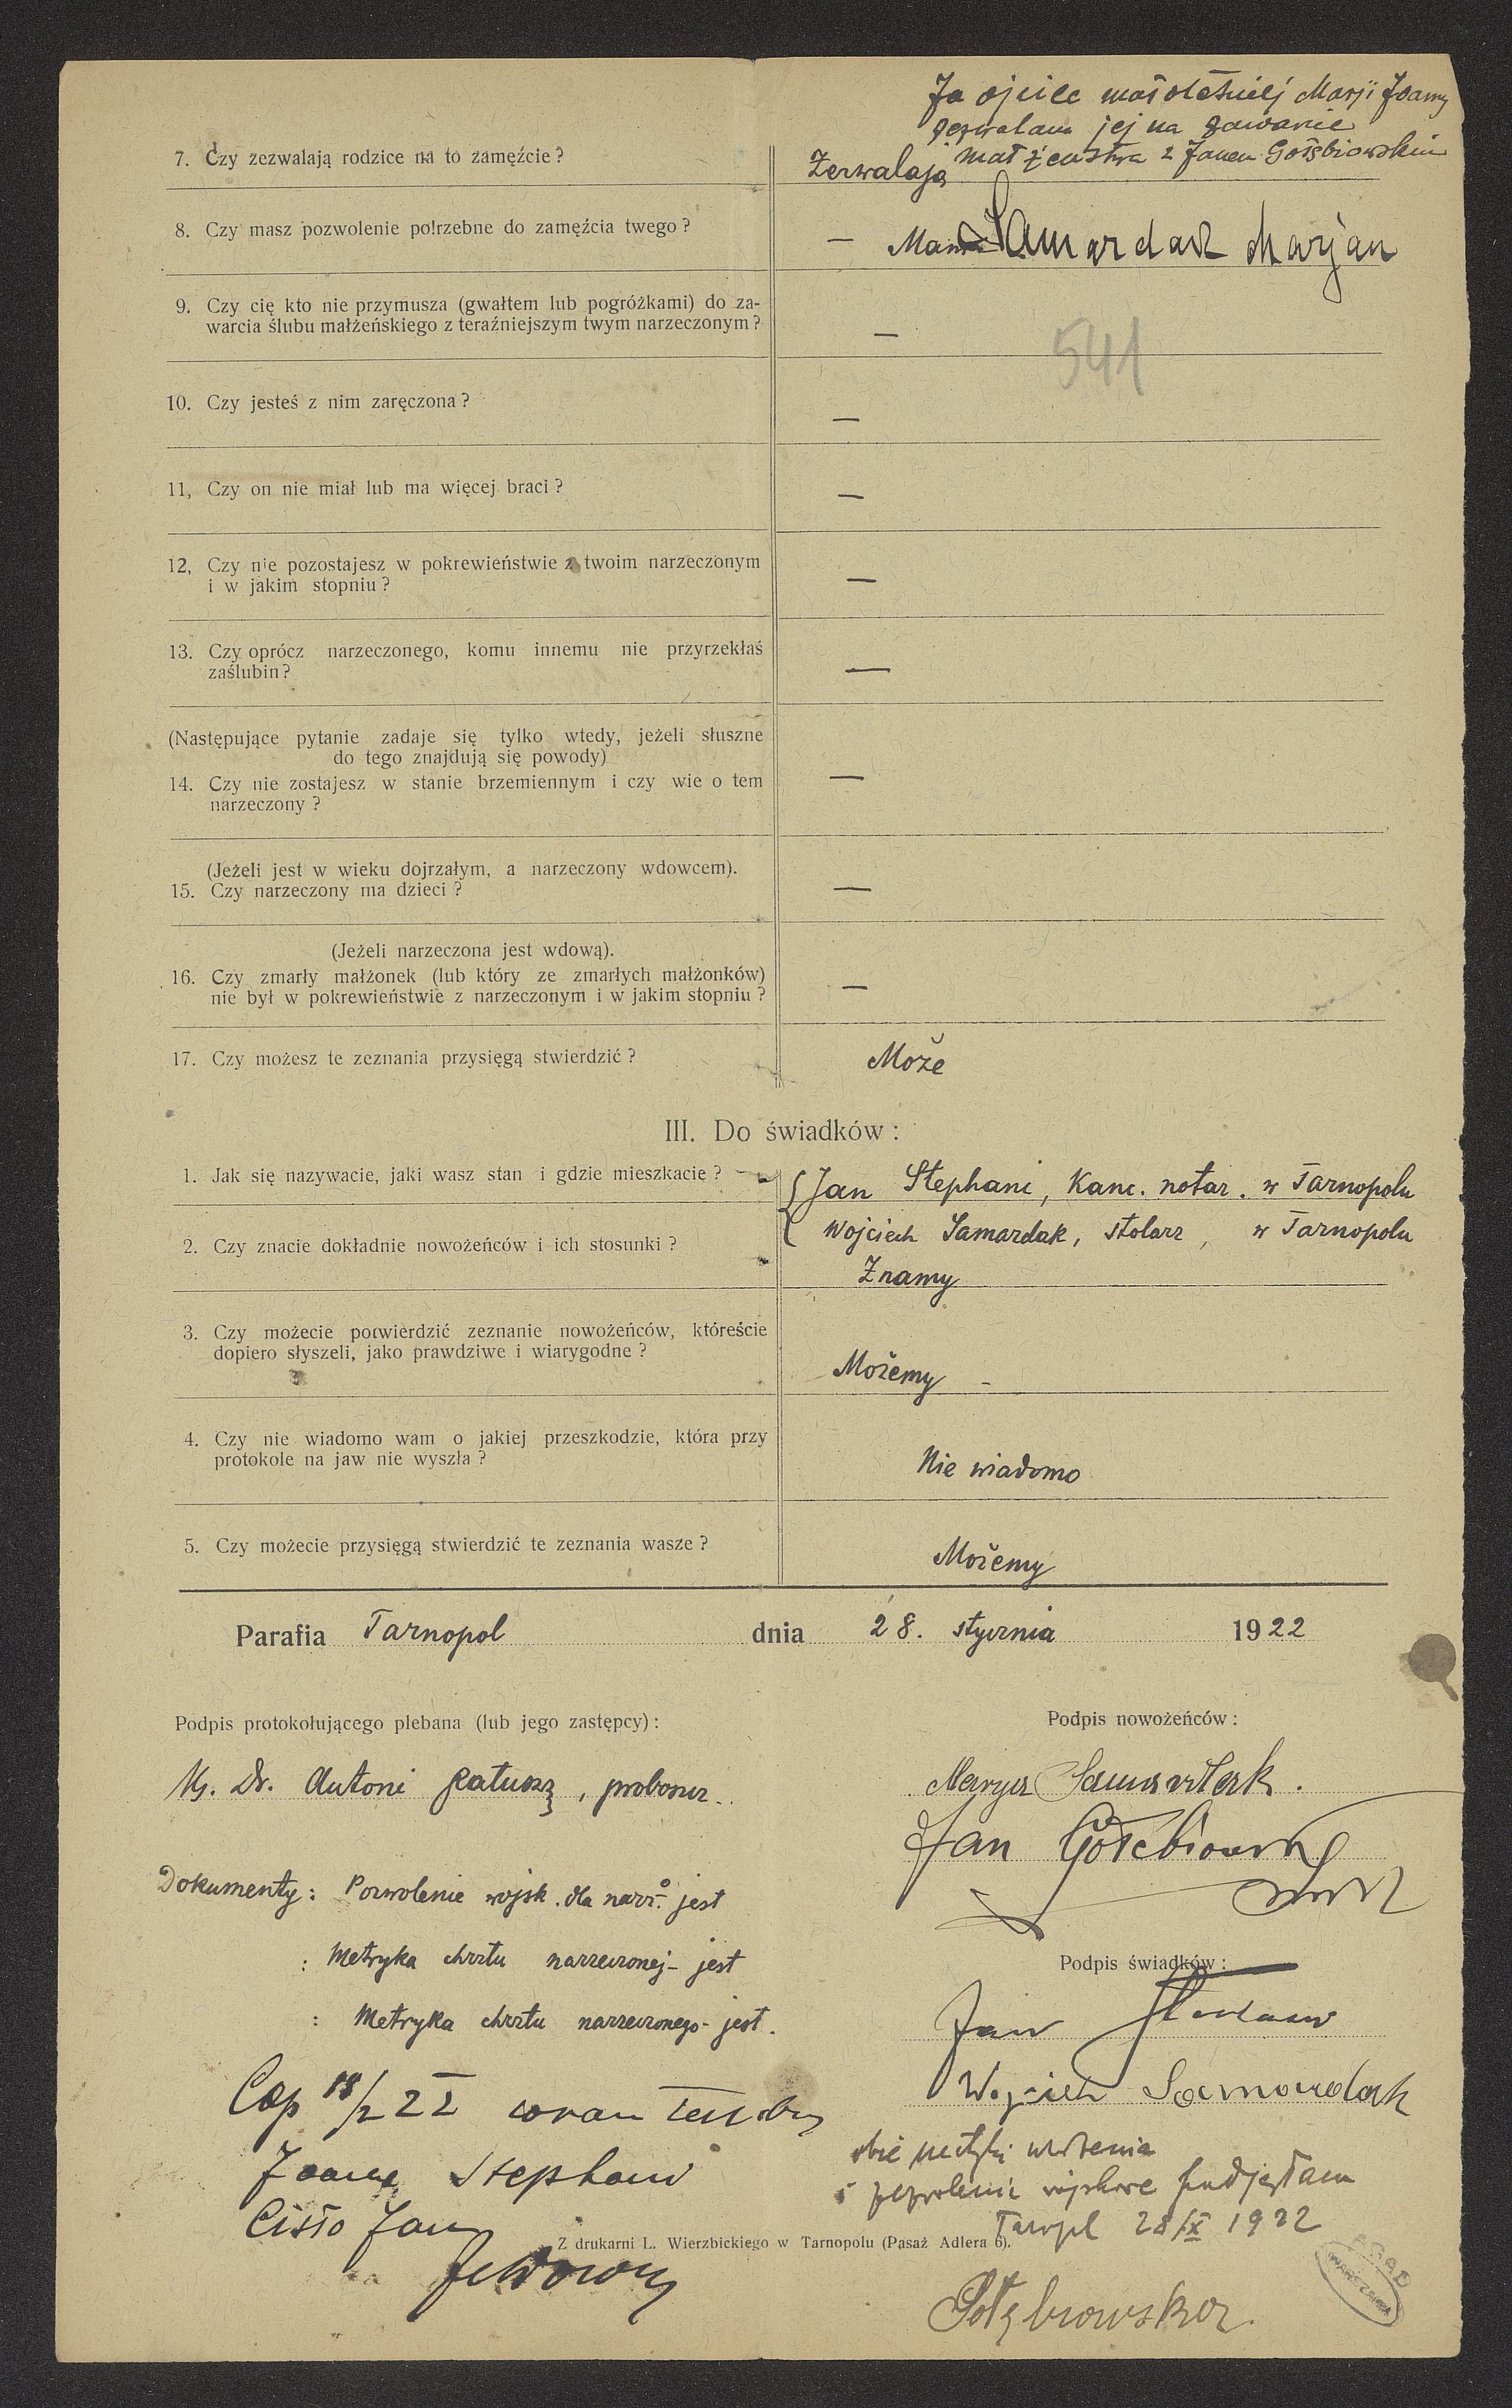 Ja ojciec małoletniej Marji Joanny
zezwalam jej na zawarcie
małżeństwa z Janem Gołębiowskim
7. Czy zezwalają rodzice na to zamęźcie?
Zezwalają
8. Czy masz pozwolenie potrzebne do zamęźcia twego?
— Mam Samardak Marjan
9. Czy cię kto nie przymusza (gwałtem lub pogróżkami) do za-
warcia ślubu małżeńskiego z teraźniejszym twym narzeczonym?
—
541
10. Czy jesteś z nim zaręczona?
—
11, Czy on nie miał lub ma więcej braci?
—
12, Czy nie pozostajesz w pokrewieństwie z twoim narzeczonym
i w jakim stopniu?
—
13. Czy oprócz narzeczonego, komu innemu nie przyrzekłaś
zaślubin?
—
(Następujące pytanie zadaje się tylko wtedy, jeżeli słuszne
do tego znajdują się powody)
14. Czy nie zostajesz w stanie brzemiennym i czy wie o tem
narzeczony?
—
(Jeżeli jest w wieku dojrzałym, a narzeczony wdowcem).
15. Czy narzeczony ma dzieci?
—
(Jeżeli narzeczona jest wdową).
16. Czy zmarły małżonek (lub który ze zmarłych małżonków)
nie był w pokrewieństwie z narzeczonym i w jakim stopniu?
—
17. Czy możesz te zeznania przysięgą stwierdzić?
Może
III. Do świadków:
1. Jak się nazywacie, jaki wasz stan i gdzie mieszkacie?
Jan Stephani, Kanc. notar. w Tarnopolu
Wojciech Samardak, stolarz, w Tarnopolu
2. Czy znacie dokładnie nowożeńców i ich stosunki?
Znamy
3. Czy możecie potwierdzić zeznanie nowożeńców, któreście
dopiero słyszeli, jako prawdziwe i wiarygodne?
Możemy –
4. Czy nie wiadomo wam o jakiej przeszkodzie, która przy
protokole na jaw nie wyszła?
Nie wiadomo
5. Czy możecie przysięgą stwierdzić te zeznania wasze?
Możemy
Parafia Tarnopol dnia 28. stycznia 1922
Podpis protokołującego plebana (lub jego zastępcy):
Ks. Dr. Antoni Ratuszz, proboszcz.
Podpis nowożeńców:
Marya Samardak.
Jan Gołębiowski
Dokumenty: Pozwolenie wojsk. dla narz. jest
: Metryka chrztu narzeczonej – jest
: Metryka chrztu narzeczonego – jest.
Podpis świadków:
Jan
Wojciech Samardak
Cop 18/2 22 coram testibus
Joanne Stephani
Cisło Jan
obie metryki urodzenia
i pozwolenie wojskowe podjęłam
Tarnopol 28/X 1922
Z drukarni L. Wierzbickiego w Tarnopolu (Pasaż Adlera 6).
Gołębiowska
AGAD
WARSZAWA